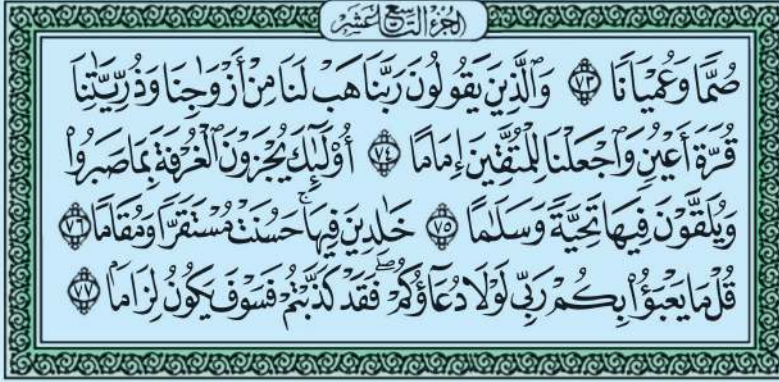 الجزء التاسع عشر
صُمًّا وَعُمْيَانًا ٧٣ وَٱلَّذِينَ يَقُولُونَ رَبَّنَا هَبْ لَنَا مِنْ أَزْوَٰجِنَا وَذُرِّيَّٰتِنَا
قُرَّةَ أَعْيُنٍ وَٱجْعَلْنَا لِلْمُتَّقِينَ إِمَامًا ٧٤ أُو۟لَٰٓئِكَ يُجْزَوْنَ ٱلْغُرْفَةَ بِمَا صَبَرُوا۟
وَيُلَقَّوْنَ فِيهَا تَحِيَّةً وَسَلَٰمًا ٧٥ خَٰلِدِينَ فِيهَا ۚ حَسُنَتْ مُسْتَقَرًّا وَمُقَامًا ٧٦
قُلْ مَا يَعْبَؤُا۟ بِكُمْ رَبِّى لَوْلَا دُعَآؤُكُمْ ۖ فَقَدْ كَذَّبْتُمْ فَسَوْفَ يَكُونُ لِزَامًۢا ٧٧